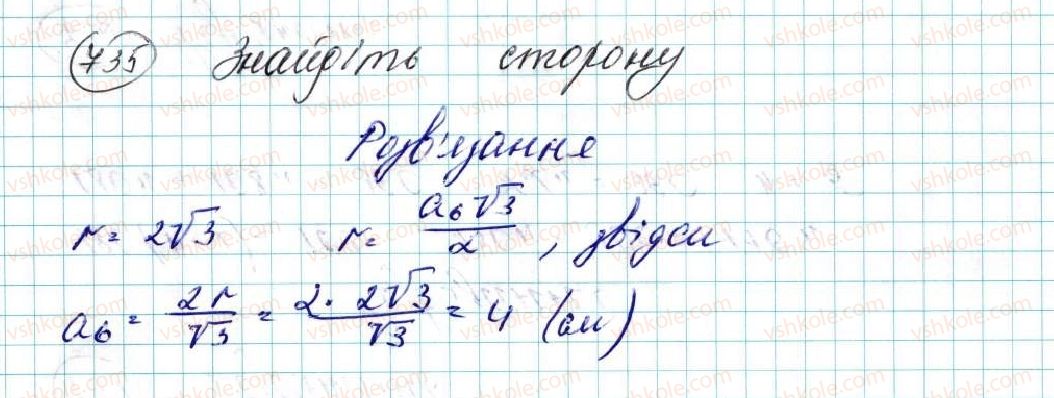 735 Знайдіть сторону
Розв'язання
r = 2√3 r = a₆√3/2, звідси
a₆ = 2r/√3 = 2·2√3/√3 = 4 (см)